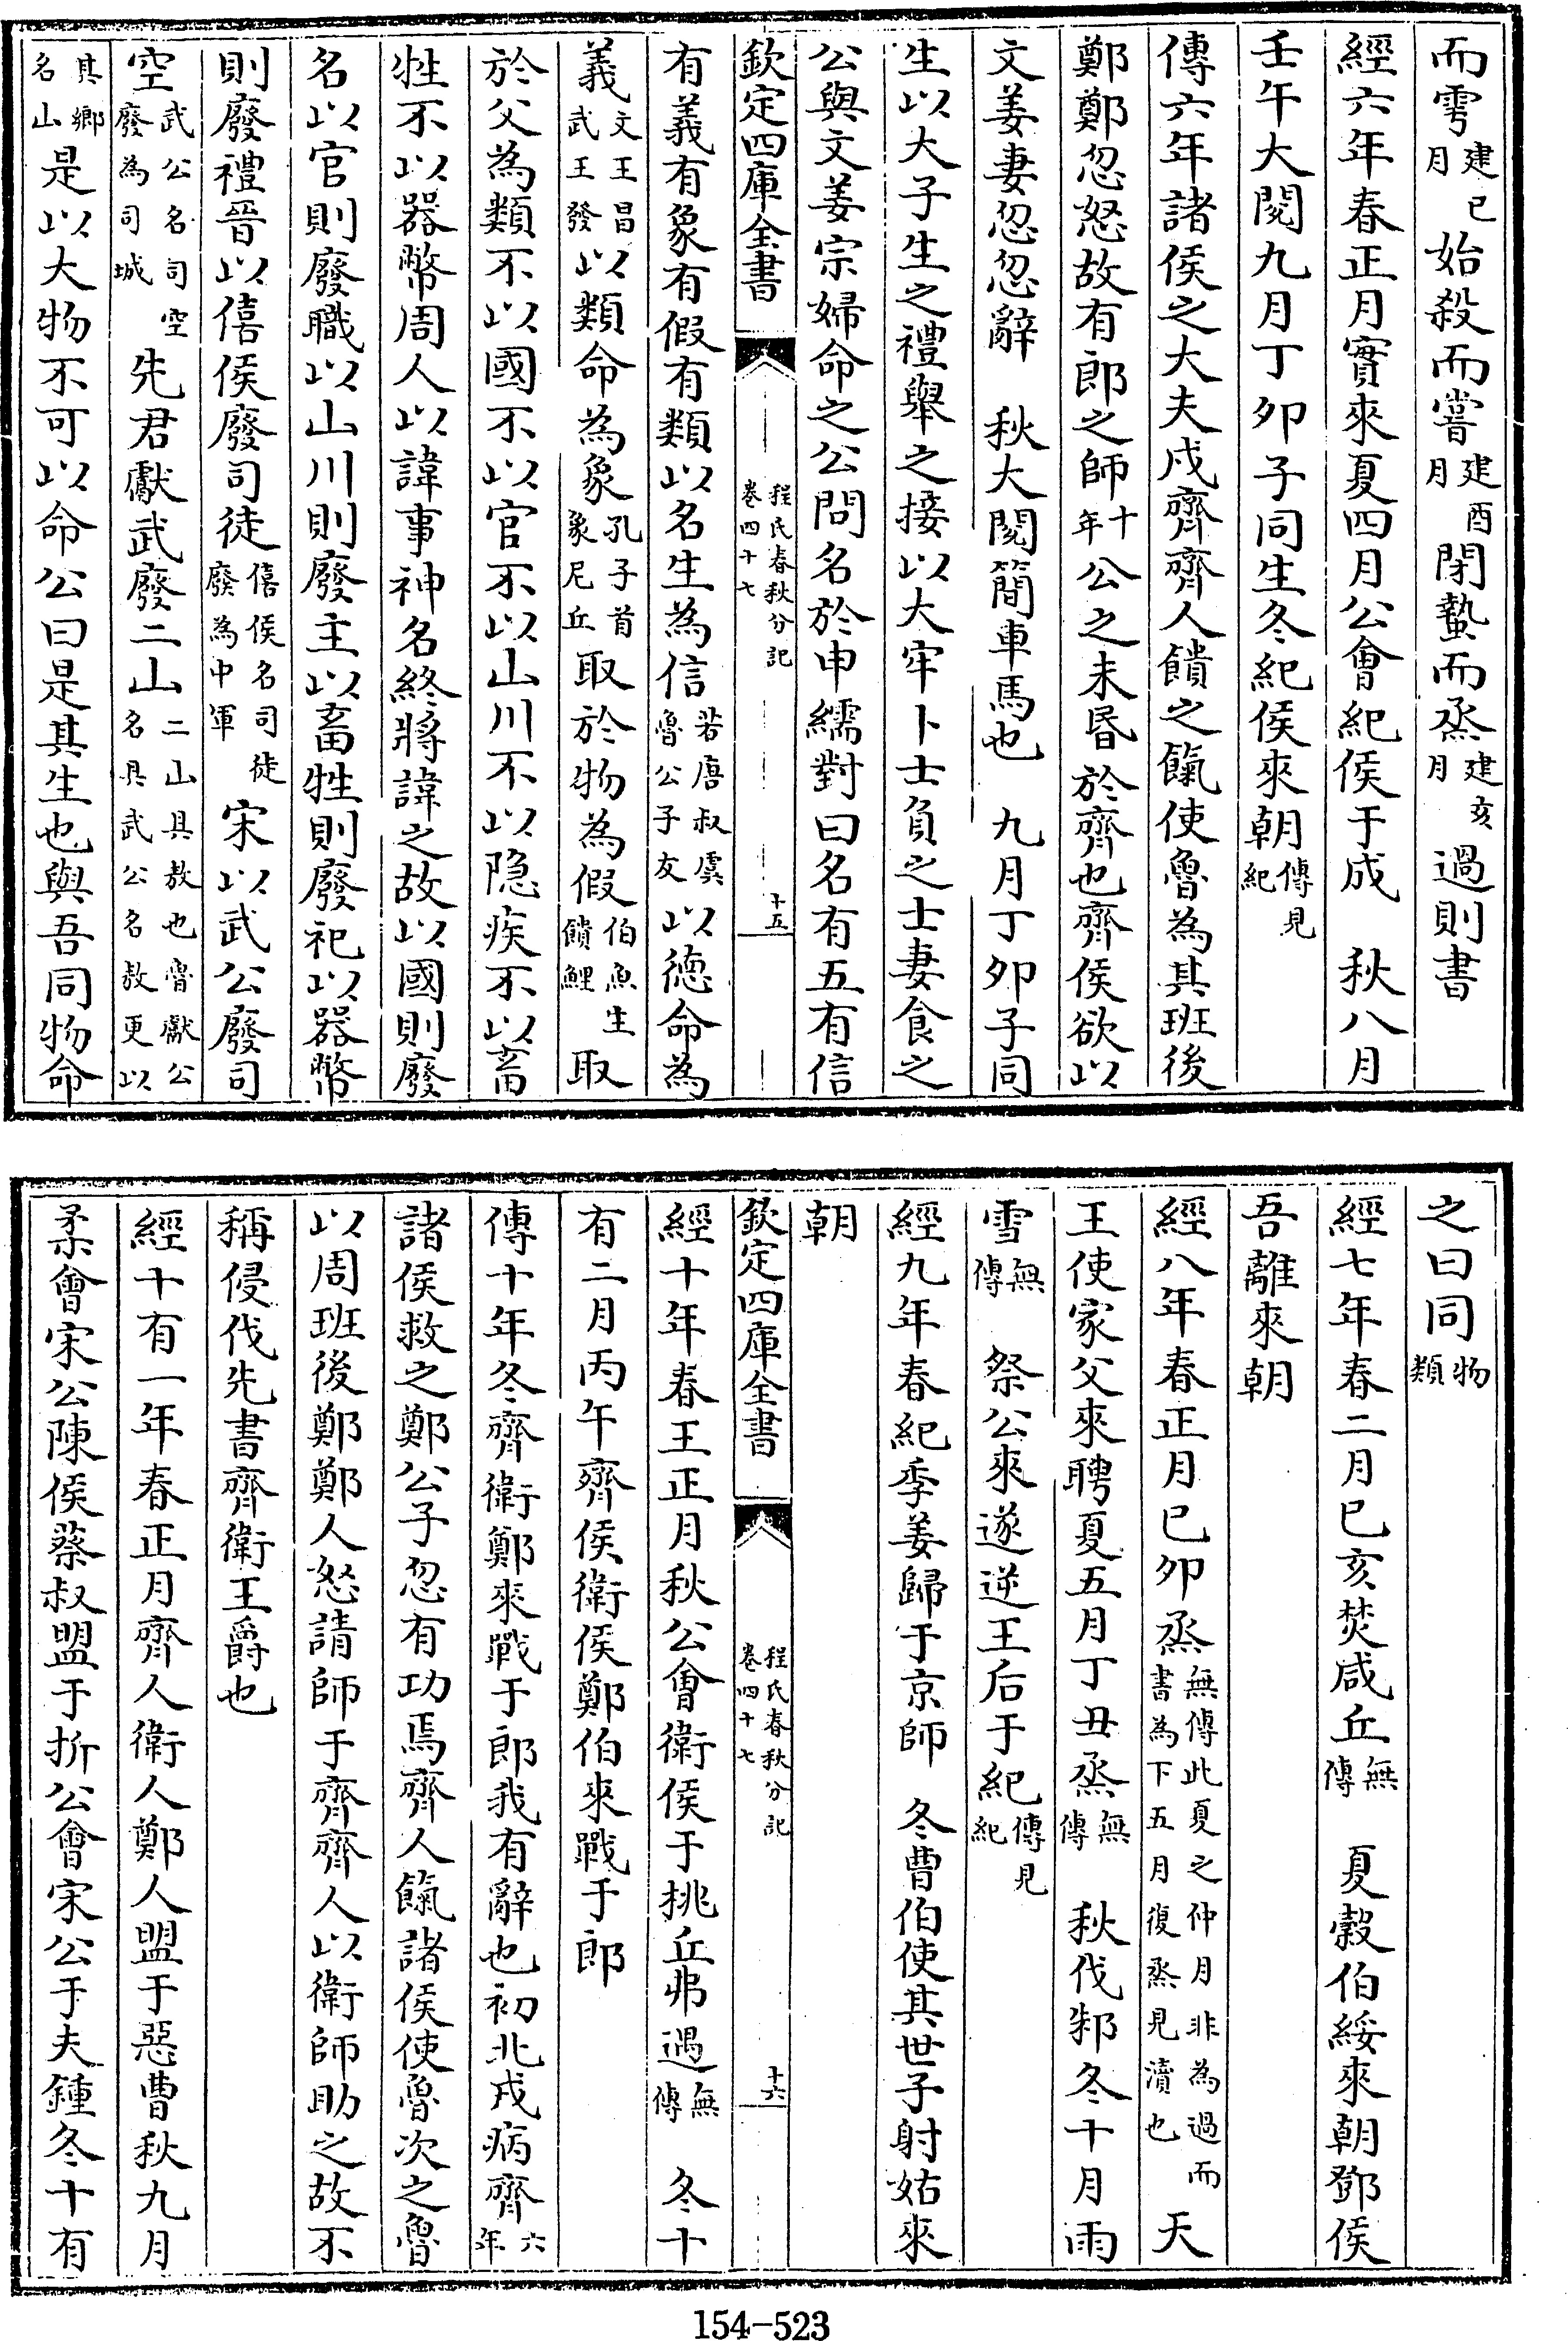 而雩建巳月始殺而嘗建酉月閉蟄而烝建亥月過則書
經六年春正月實來夏四月公會紀侯于成　秋八月
壬午大閱九月丁卯子同生冬紀侯來朝傳見紀
傳六年諸侯之大夫戍齊齊人饋之餼使魯為其班後
鄭鄭忽怒故有郎之師十年公之未昏於齊也齊侯欲以
文姜妻忽忽辭　秋大閱簡車馬也　九月丁卯子同
生以大子生之禮舉之接以大牢卜士負之士妻食之
公與文姜宗婦命之公問名於申繻對曰名有五有信
欽定四庫全書　程氏春秋分記卷四十七　十五
有義有象有假有類以名生為信若唐叔虞魯公子友以德命為
義文王昌武王發以類命為象孔子首象尼丘取於物為假伯魚生饋鯉取
於父為類不以國不以官不以山川不以隐疾不以畜
牲不以器幣周人以諱事神名終將諱之故以國則廢
名以官則廢職以山川則廢主以畜牲則廢祀以器幣
則廢禮晉以僖侯廢司徒僖侯名司徒廢為中軍宋以武公廢司
空武公名司空廢為司城先君獻武廢二山二山具敖也魯獻公名具武公名敖更以
其鄉名山是以大物不可以命公曰是其生也與吾同物命
之曰同物類
經七年春二月已亥焚咸丘無傳　夏穀伯綏來朝鄧侯
吾離來朝
經八年春正月已卯烝無傳此夏之仲月非為過而書為下五月復烝見瀆也天
王使家父來聘夏五月丁丑烝無傳　秋伐邾冬十月雨
雪無傳　祭公來遂逆王后于紀傳見紀
經九年春紀季姜歸于京師　冬曹伯使其世子射姑來
朝
欽定四庫全書　程氏春秋分記卷四十七　十六
經十年春王正月秋公會衛侯于挑丘弗遇無傳　冬十
有二月丙午齊侯衛侯鄭伯來戰于郎
傳十年冬齊衛鄭來戰于郎我有辭也初北戎病齊六年
諸侯救之鄭公子忽有功焉齊人餼諸侯使魯次之魯
以周班後鄭鄭人怒請師于齊齊人以衛師助之故不
稱侵伐先書齊衛王爵也
經十有一年春正月齊人衛人鄭人盟于惡曹秋九月
柔會宋公陳侯蔡叔盟于折公會宋公于夫鍾冬十有
154-523